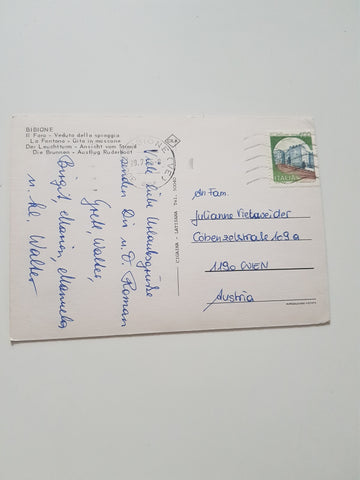 BIBIONE
Il Faro - Veduta della spiaggia
La Fontana - Gita in moscone
Der Leuchtturm - Ansicht vom Strand
Die Brunnen - Ausflug Ruderboot
Viele liebe Urlaubsgrüße
senden Dir u. Roman
Gretl, Walter,
Birgit, Marion, Manuela
u. kl. Walter
ITALIA
An Fam.
Julianne
Cobenzelstraße
1190 WIEN
Austria